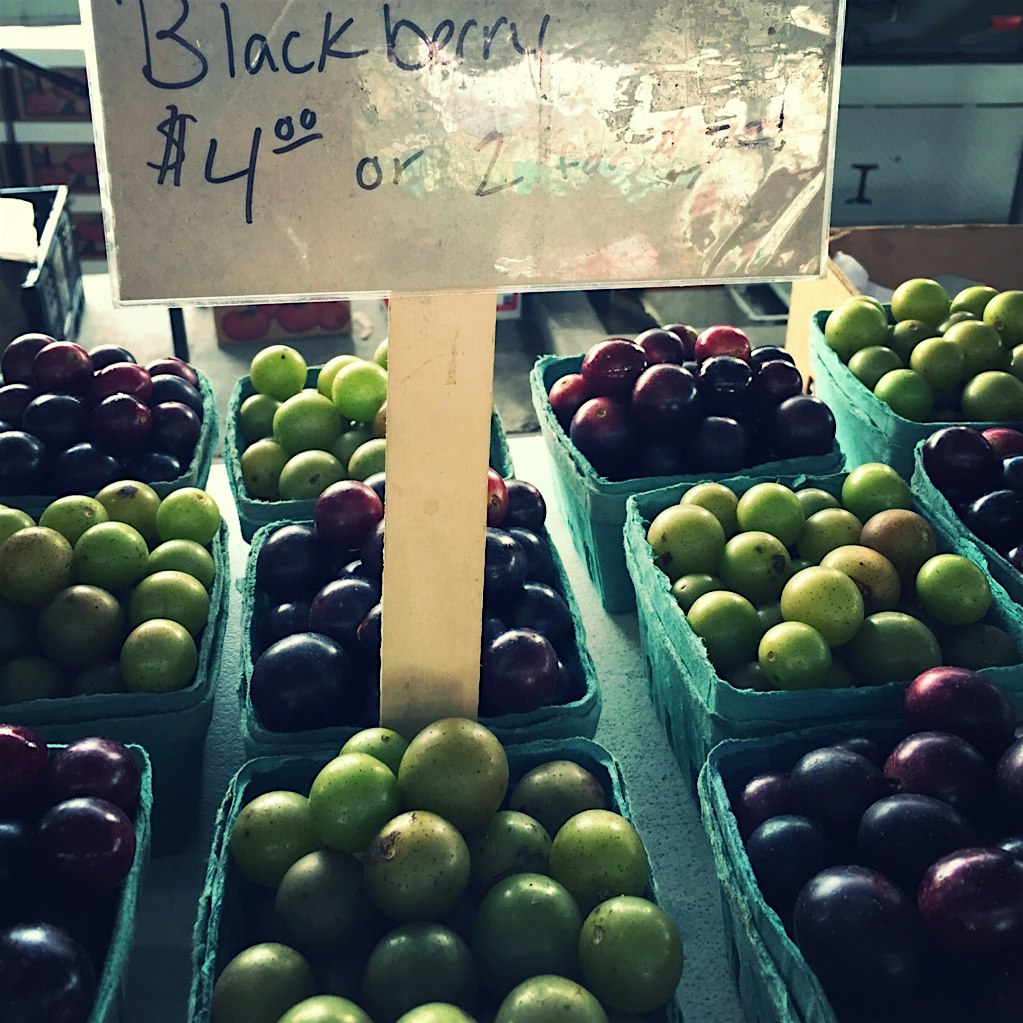 Blackberry
$4.00 or 2 for $
I